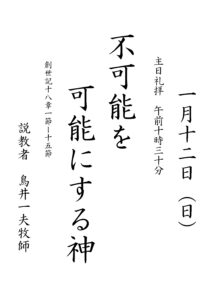 一月十二日（日）
主日礼拝　午前十時三十分
不可能を
可能にする神
創世記十八章一節ー十五節
説教者　鳥井一夫牧師